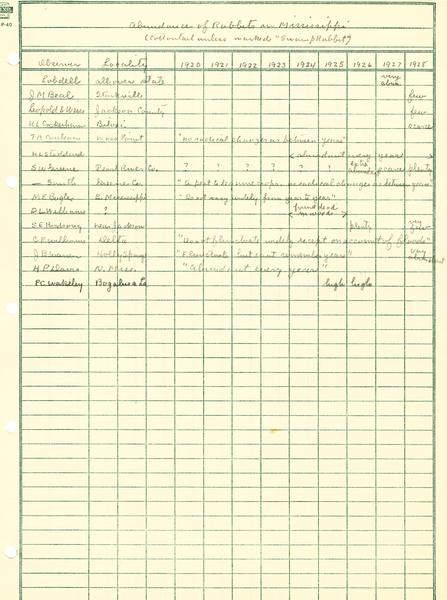 P-40
Abundance of Rabbits in Mississippi
(Cottontail unless marked "Swamp Rabbit")
Observer Locality 1920 1921 1922 1923 1924 1925 1926 1927 1928
Lobdell all over state very abun.
J M Beal Starkville few
Leopold & Jackson County few
H L Cockerham Biloxi scarce
T A Moss Point "no radical changes as between years"
H L Stoddard abundant every year
S W Greene Pearl River Co. ? ? ? ? ? ? extra abundant scarce plenty
— Smith Greene Co. "a pest to legume crops. no radical changes as between years
M F Bugler E. Mississippi "Do not vary widely from year to year"
D L Williams " found dead in woods
S E near Jackson plenty very few
C F Williams Delta "Do not fluctuate widely except on account of floods"
J B Holly Spgs "Fluctuate but cant remember years" very abundant
H P N. Miss. "abundant every year"
P C Wakeley Bogalusa La high high